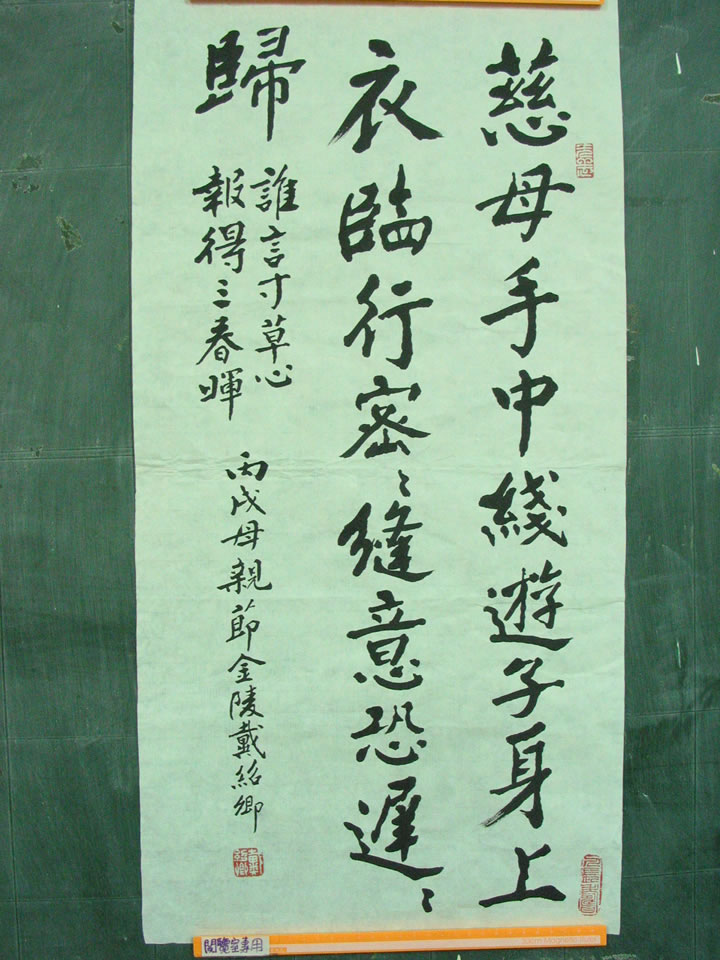 慈母手中綫遊子身上
衣臨行密〻縫意恐遲〻
歸
誰言寸草心
報得三春暉
丙戌母親節金陵戴紹卿
閱覽室專用